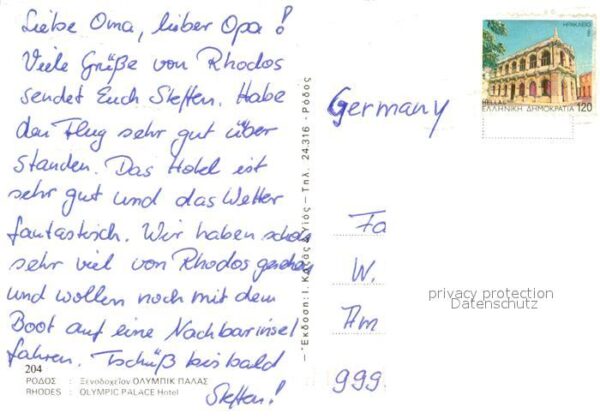 Liebe Oma, lieber Opa!
Viele Grüße von Rhodos
sendet Euch Steffen. Habe
den Flug sehr gut über
standen. Das Hotel ist
sehr gut und das Wetter
fantastisch. Wir haben schon
sehr viel von Rhodos gesehen
und wollen noch mit dem
Boot auf eine Nachbarinsel
fahren. Tschüß bis bald
Steffen!
204
ΡΟΔΟΣ : Ξενοδοχεῖον ΟΛΥΜΠΙΚ ΠΑΛΑΣ
RHODES : OLYMPIC PALACE Hotel
24.316 - Ρόδος
ΗΡΑΚΛΕΙΟ
ΕΛΛΗΝΙΚΗ ΔΗΜΟΚΡΑΤΙΑ 120
Germany
Fa
W.
Am
999.
privacy protection
Datenschutz